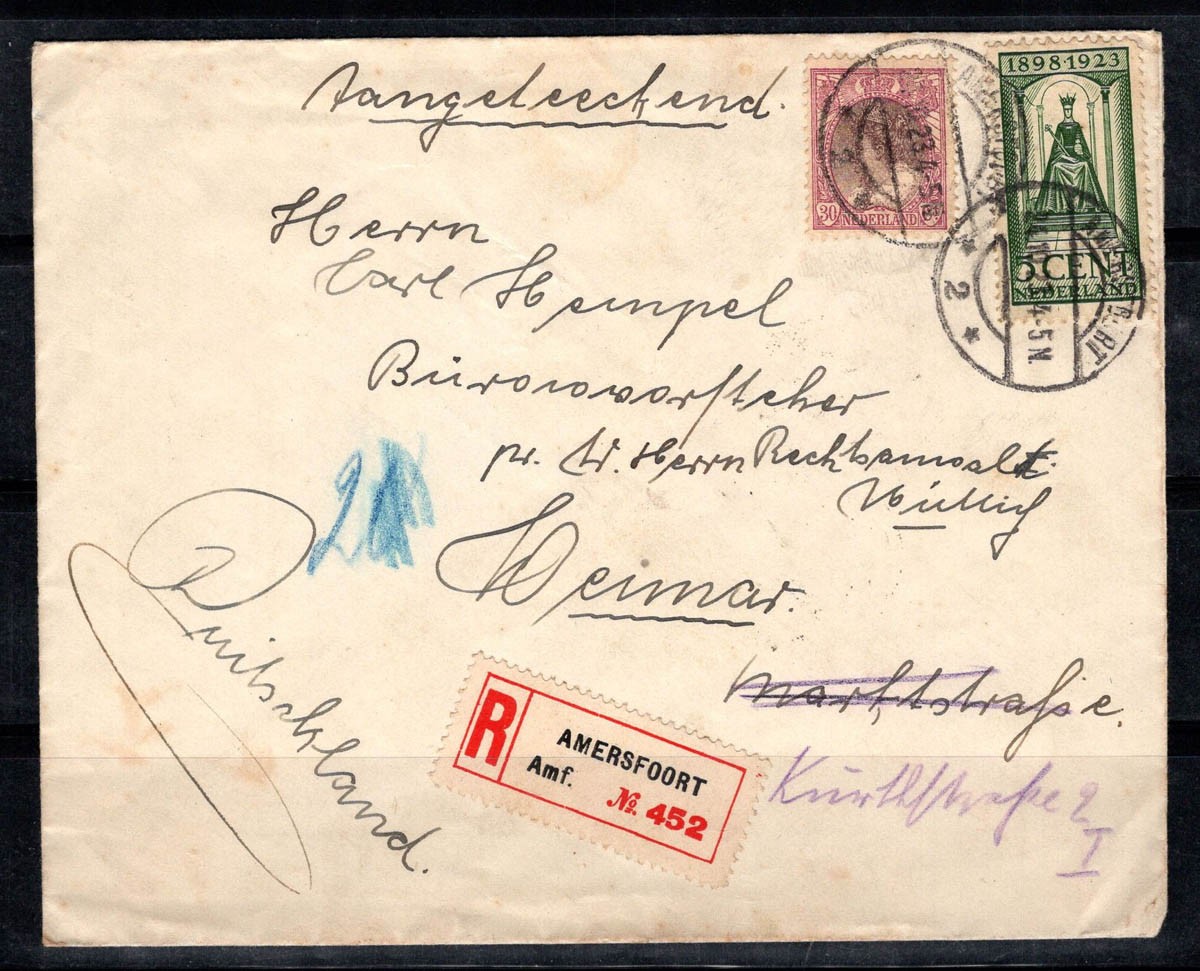 Aangeteekend.
1898-1923
5 CENT
NEDERLAND
30 NEDERLAND Ct
AMERSFOORT
4-5 N.
2
Herrn
Carl Hempel
Bürovorsteher
pr. Ad. Herrn Rechtsanwalt
Wüllich
Weimar.
Marktstraße.
Kurthstraße 2
I
Duitschland.
R
AMERSFOORT
Amf.
№ 452